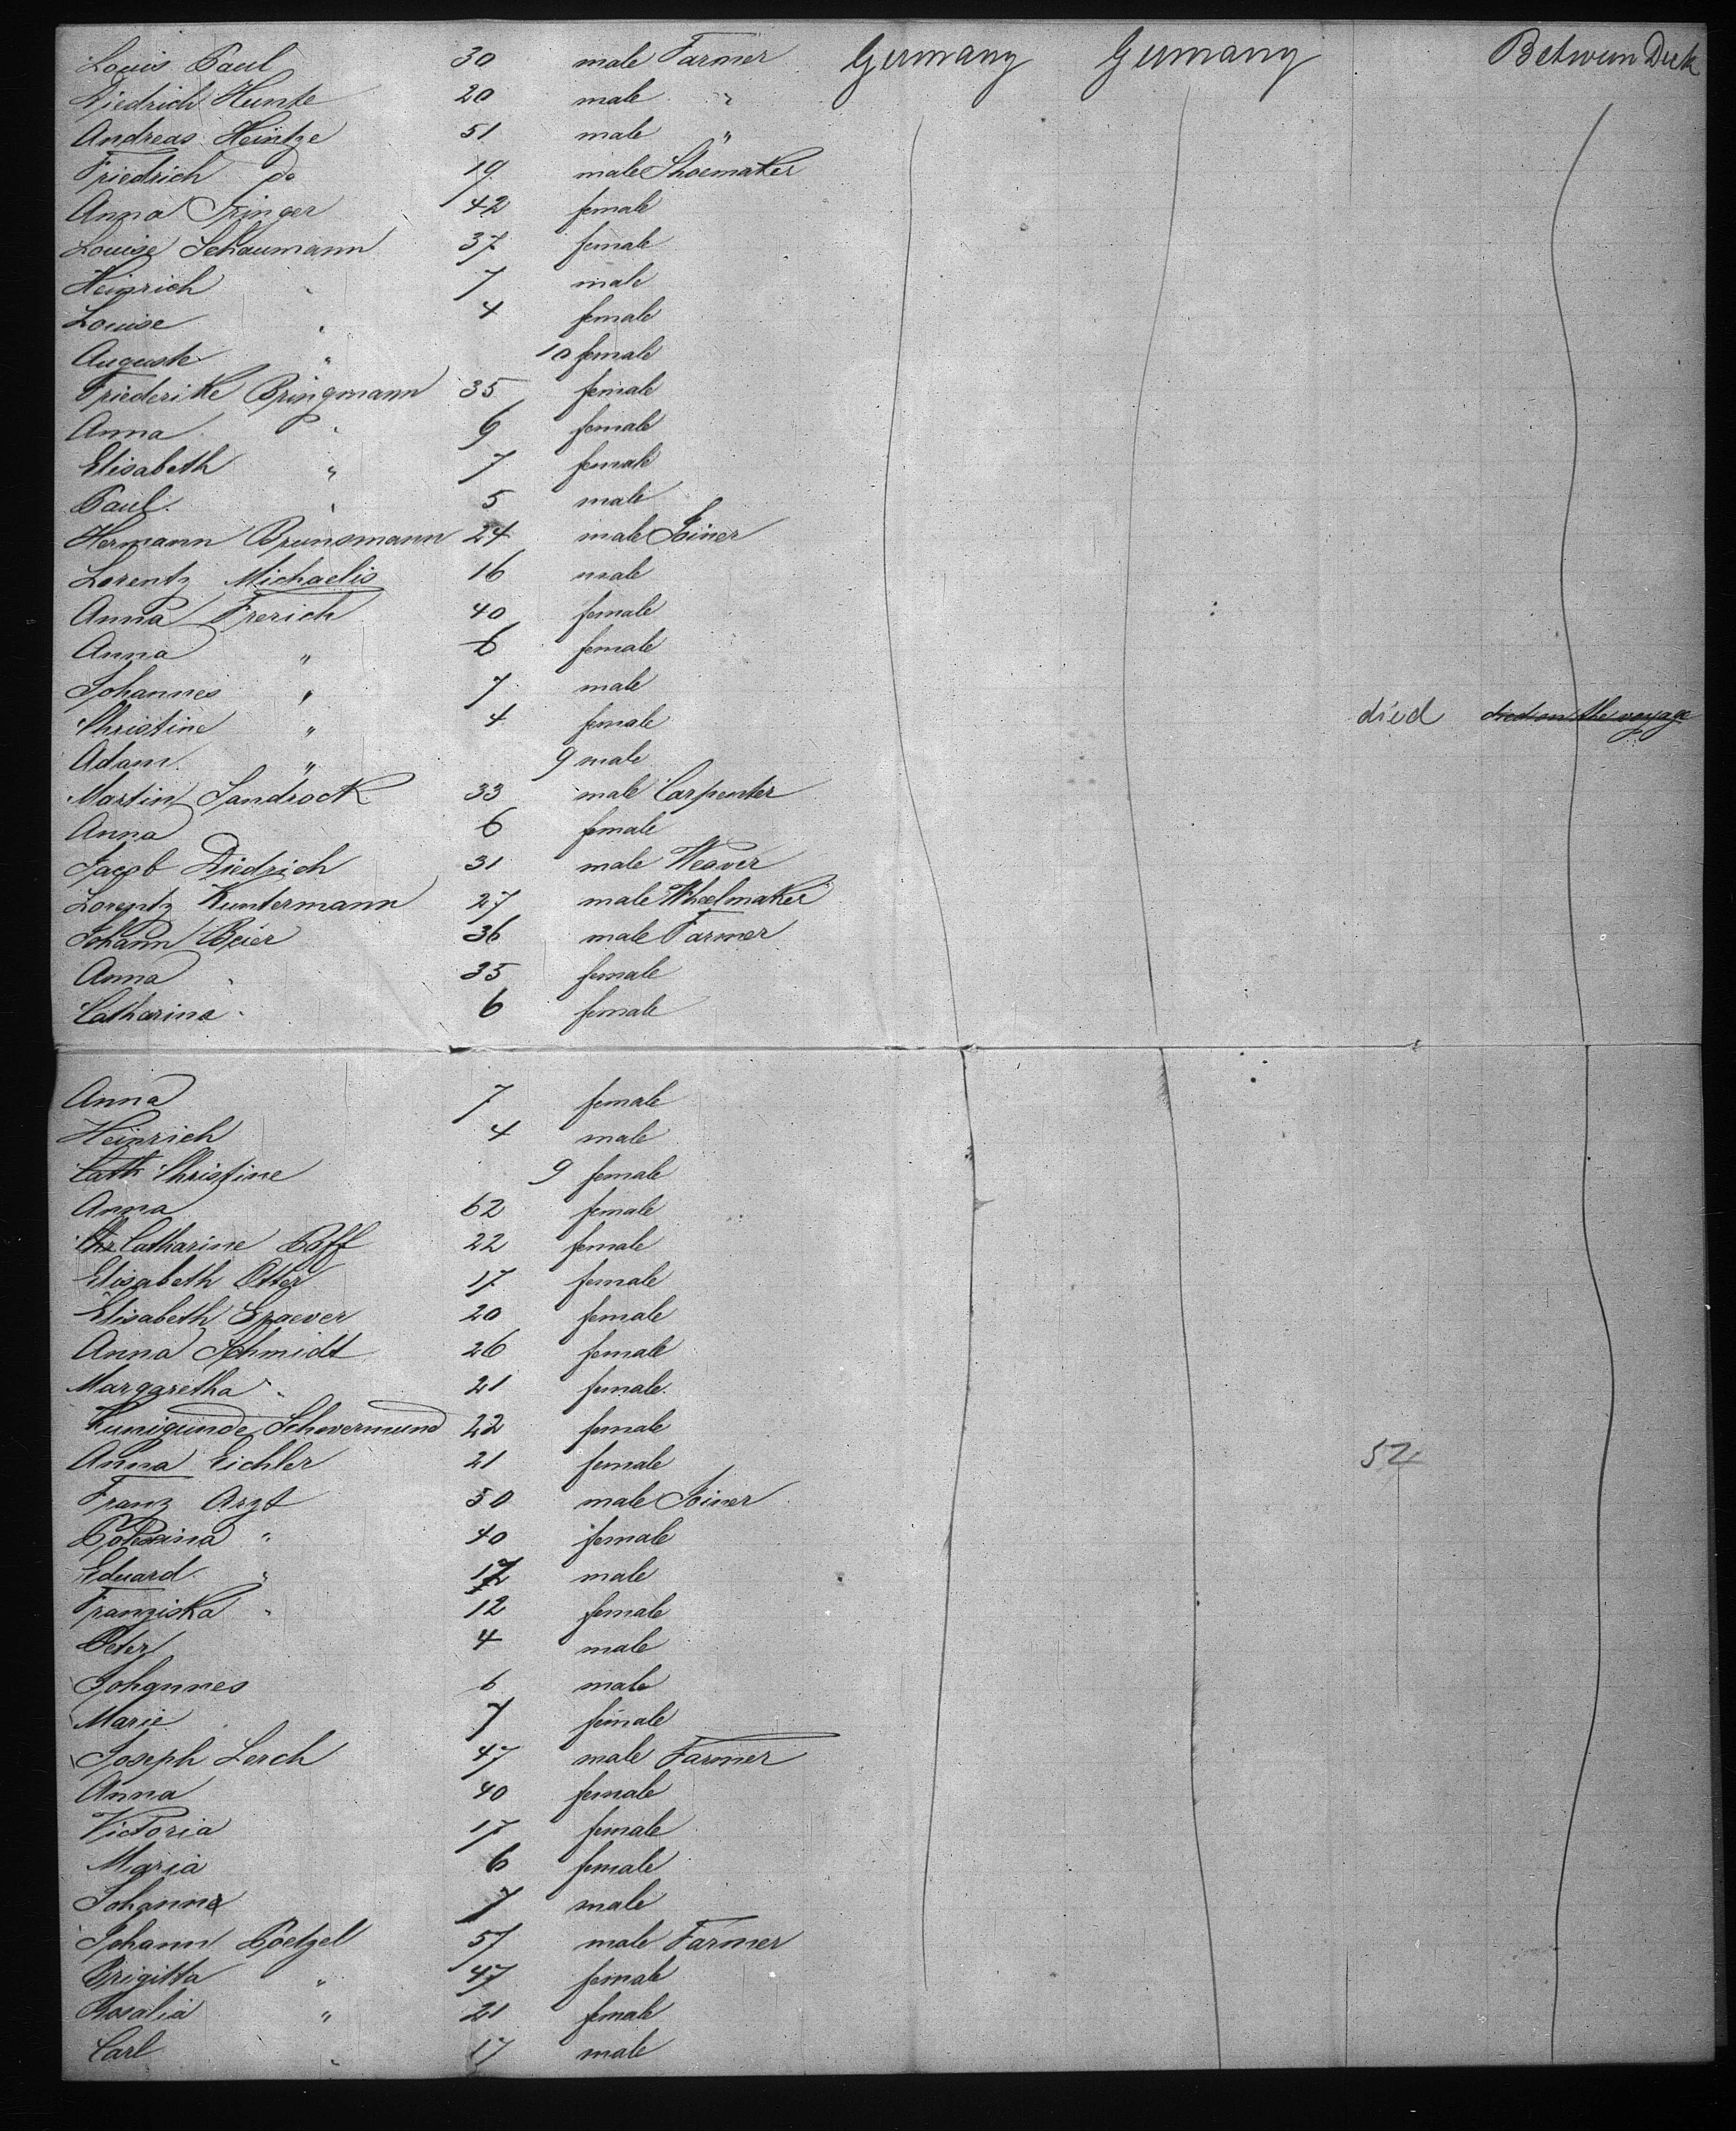 Louis Paul 30 male Farmer Germany Germany Between Deck
Diedrich Hunte 20 male "
Andreas Heintze 51 male "
Friedrich do 19 male Shoemaker
Anna Iringer 42 female
Louise Schaumann 37 female
Heinrich " 7 male
Louise " 4 female
Auguste " 10 female
Friederike Bringmann 35 female
Anna " 9 female
Elisabeth " 7 female
Paul " 5 male
Hermann Brunsmann 24 male Joiner
Lorentz Michaelis 16 male
Anna Frerich 40 female
Anna " 6 female
Johannes " 7 male
Christine " 4 female died died on the voyage
Adam " 9 male
Martin Sandrock 33 male Carpenter
Anna 6 female
Jacob Diedrich 31 male Weaver
Lorentz Kuntermann 27 male Wheelmaker
Johann Beier 36 male Farmer
Anna " 35 female
Catharina " 6 female
Anna 7 female
Heinrich 4 male
Cath Christine 9 female
Anna 62 female
Chr Catharine Paff 22 female
Elisabeth Otter 17 female
Elisabeth Graever 20 female
Anna Schmidt 26 female
Margaretha " 21 female
Kunigunde Schwermund 22 female
Anna Eichler 21 female 54
Franz Arzt 50 male Joiner
" 40 female
Eduard " 17 male
Franziska " 12 female
Peter 4 male
Johannes 6 male
Marie 7 female
Joseph Lerch 47 male Farmer
Anna 40 female
Victoria 17 female
Maria 6 female
Johann 7 male
Johann Poetzel 57 male Farmer
Brigitta " 47 female
Rosalia " 21 female
Carl " 17 male